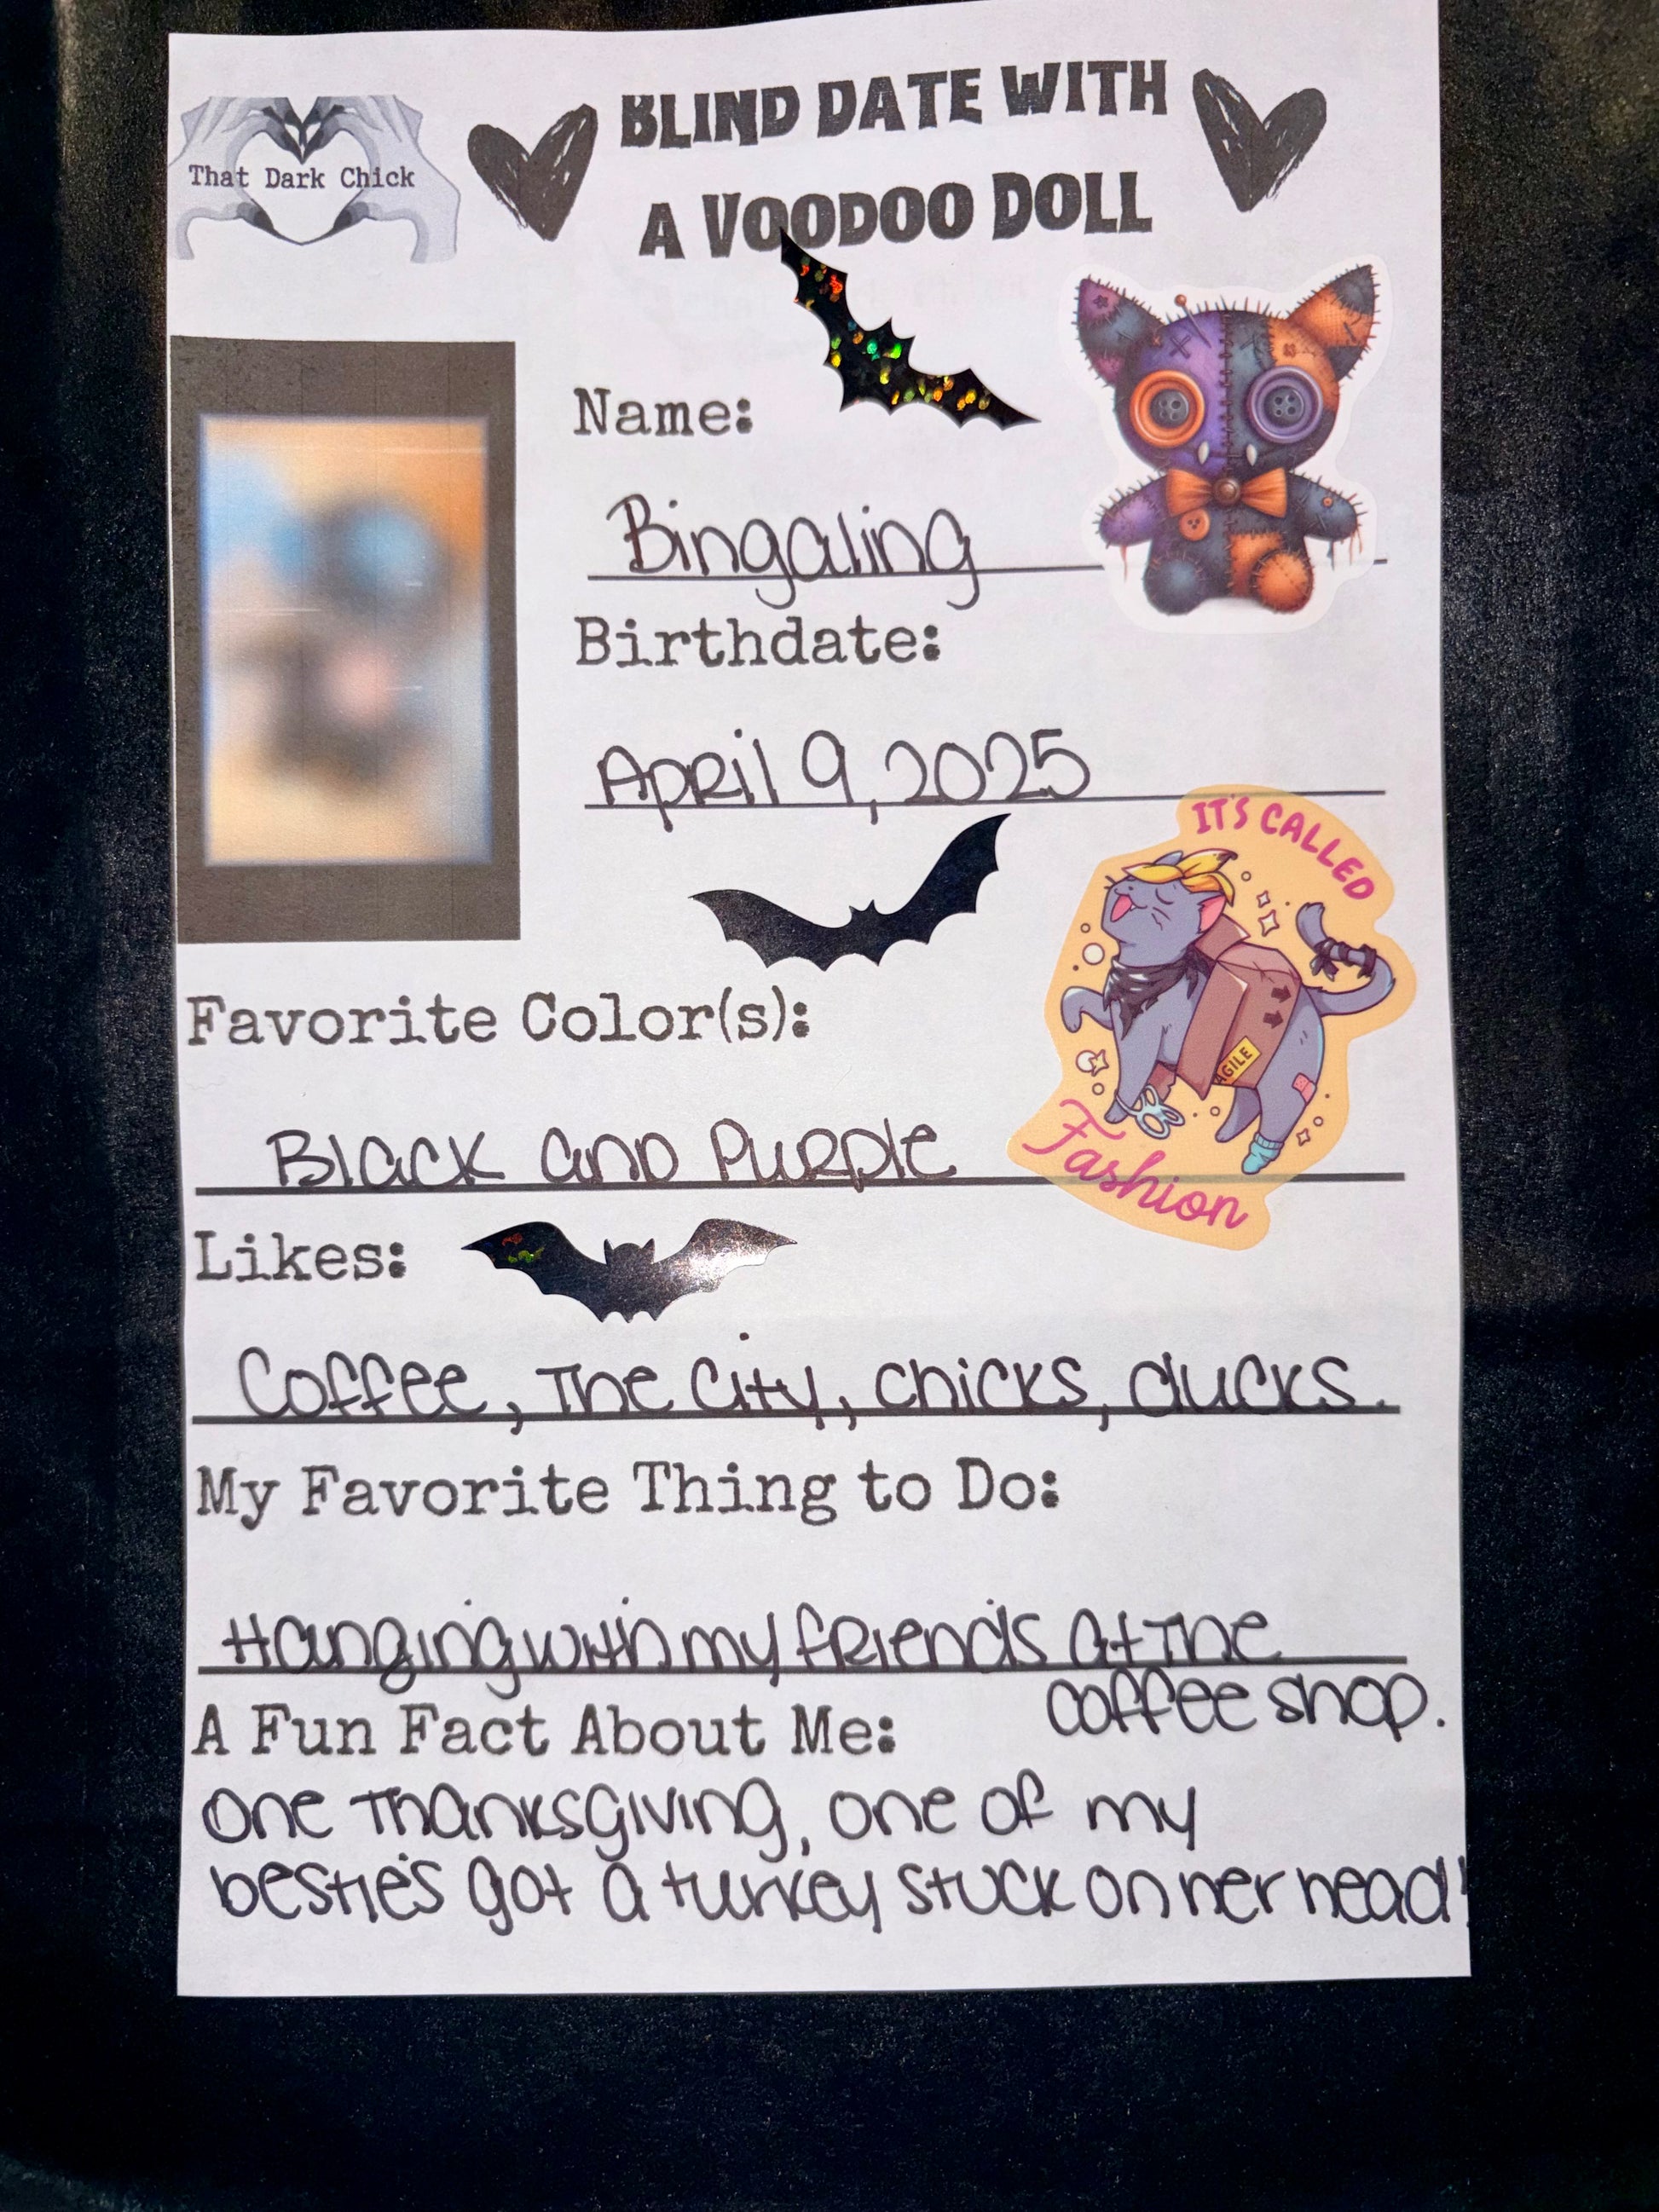 That Dark Chick
BLIND DATE WITH
A VOODOO DOLL
Name:
Bingaling
Birthdate:
April 9, 2025
IT'S CALLED
AGILE
Fashion
Favorite Color(s):
Black and Purple
Likes:
Coffee, The City, chicks, ducks.
My Favorite Thing to Do:
Hanging with my friends at the
coffee shop.
A Fun Fact About Me:
One Thanksgiving, one of my
bestie's got a turkey stuck on her head!